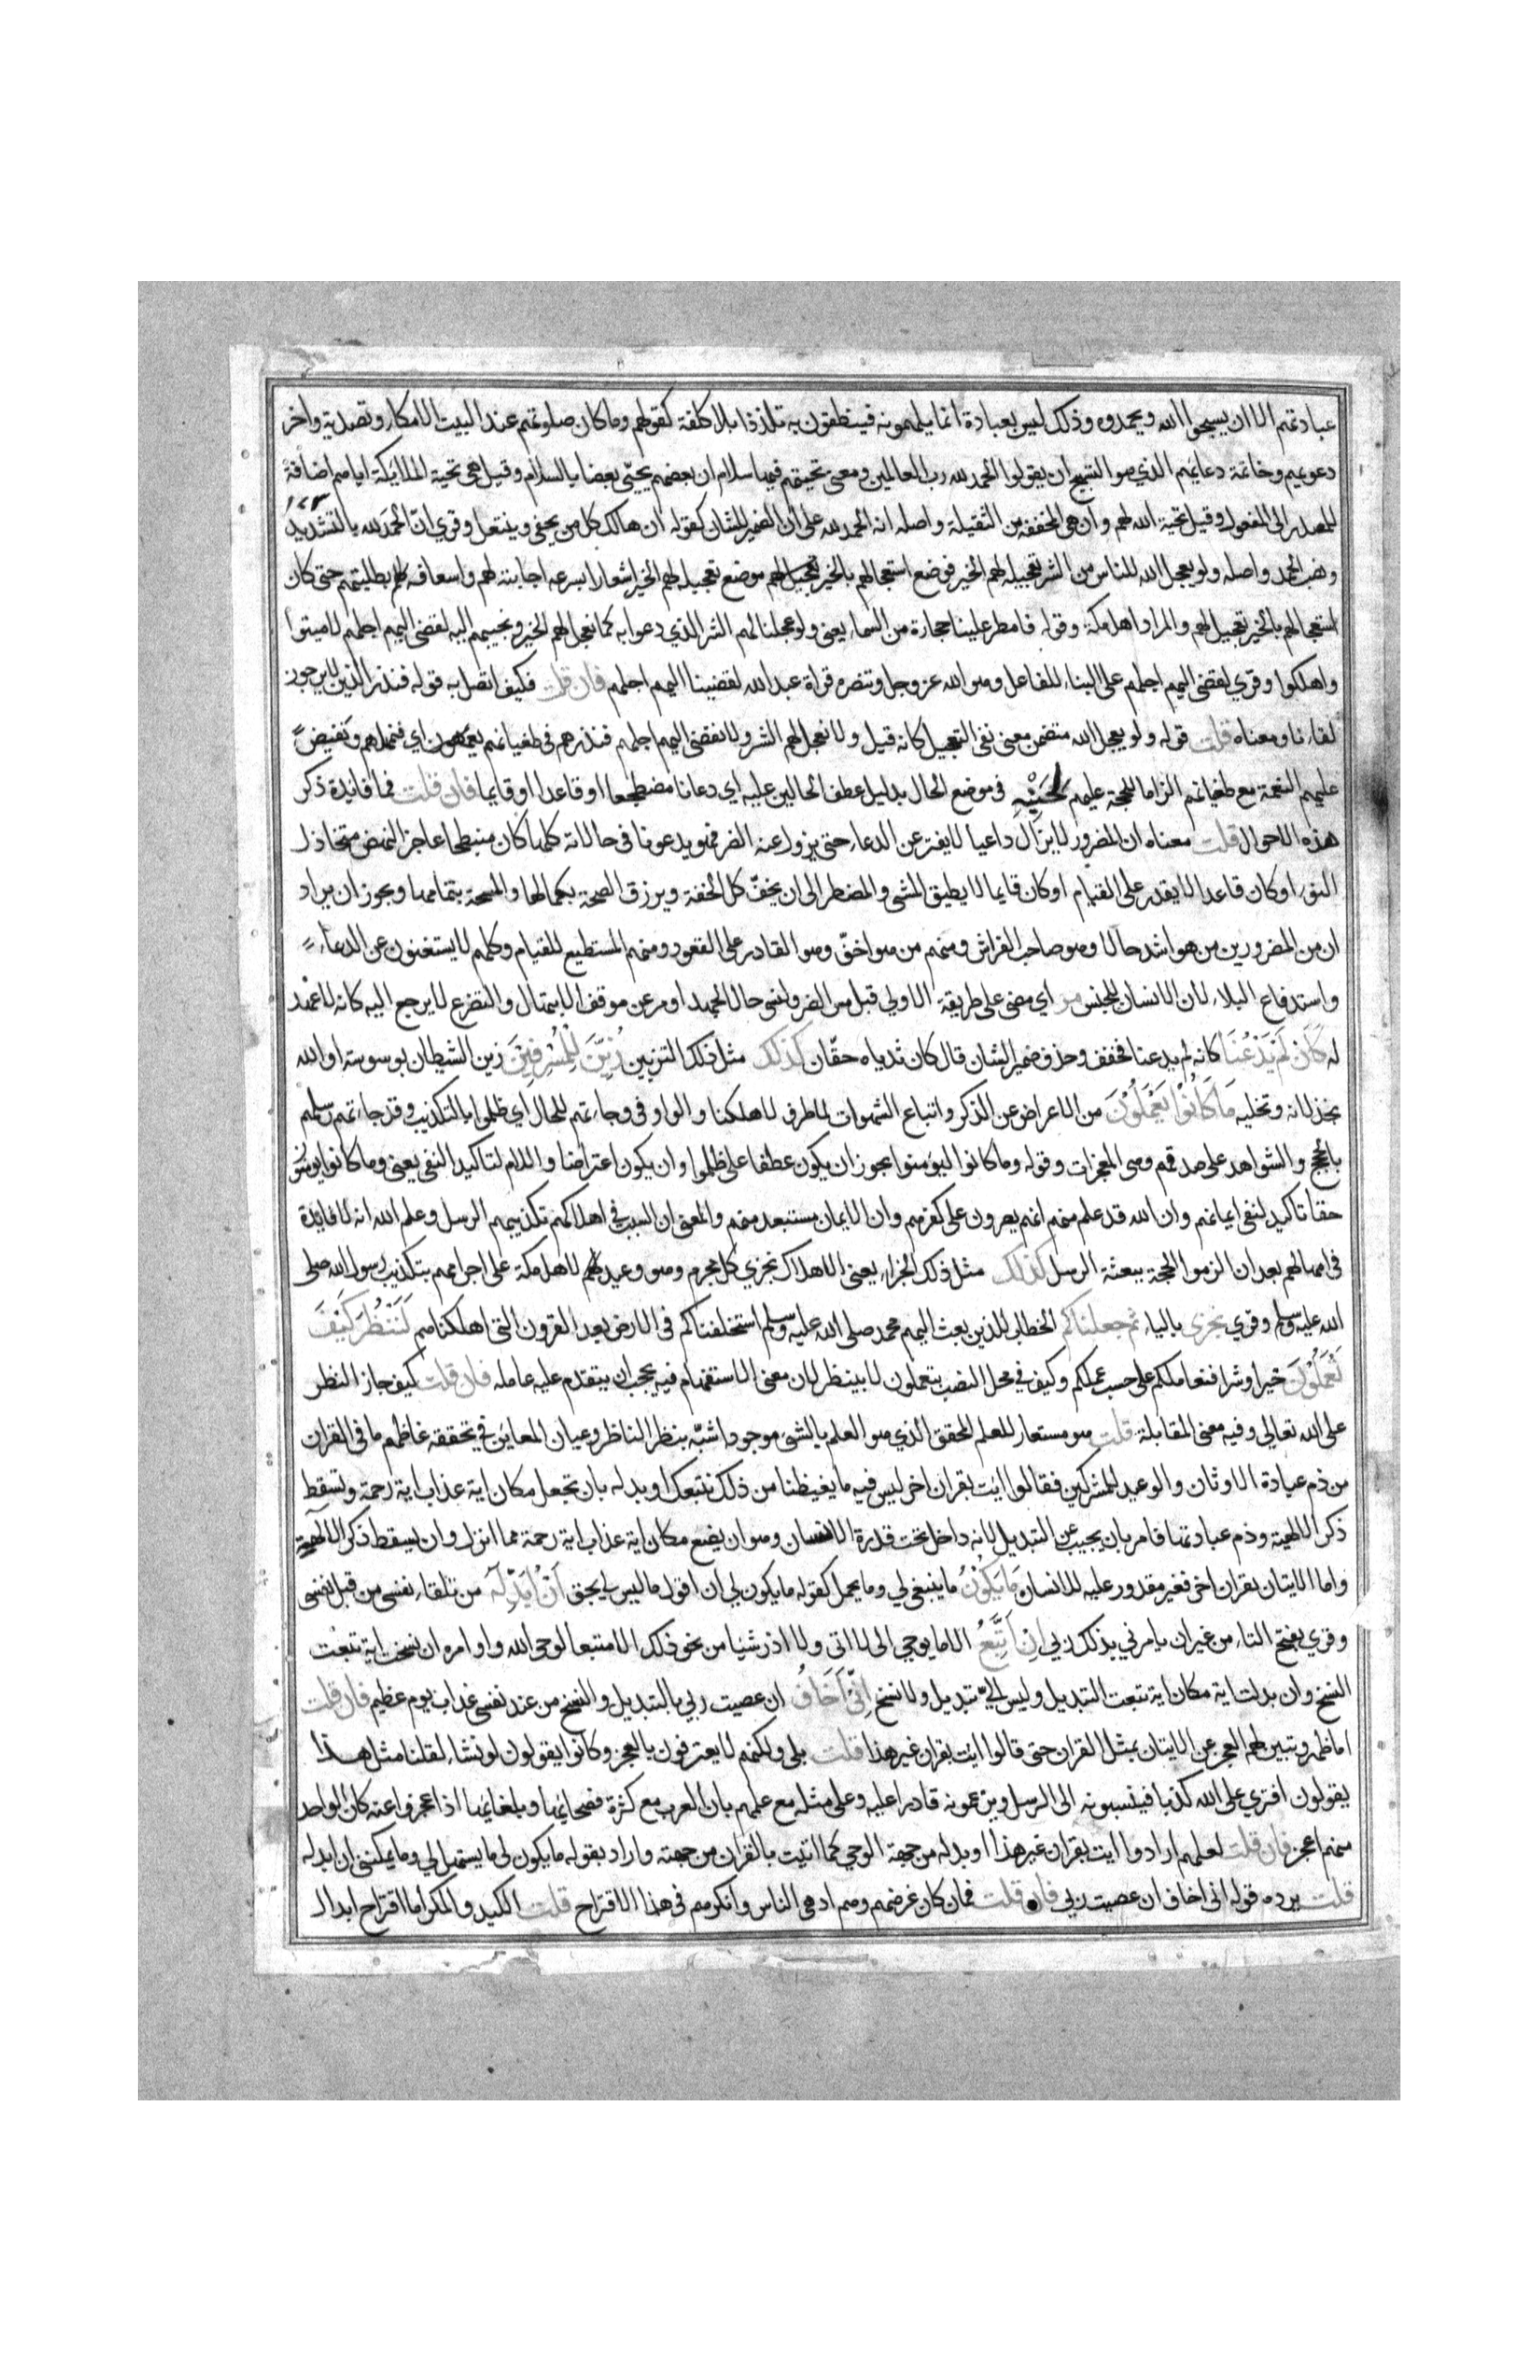 عبادتهم الا ان يسبحوا الله ويحمدوه وذلك ليس بعبادة انما يلهمونه فينطقون به تلذذا بلا كلفة كقولهم وما كان صلوتهم عند البيت الا مكاء وتصدية واخر
دعويهم وخاتمة دعايهم الذي هو التسبيح ان يقولوا الحمد لله رب العالمين ومعنى تحيتهم فيها سلام ان بعضهم يحيّي بعضا بالسلام وقيل هي تحية الملائيكة اياهم اضافةً
للمصدر الى المفعول وقيل تحية الله لهم وان هي المخففة من الثقيلة واصله انه الحمد لله على ان الضمير للشان كقوله ان هالك كل من يحفى وينتعل وقري انّ الحمدَ لله بالتشديد
ونصب الحمد واصله ولو يعجل الله للناس من الشر تعجيله لهم الخير فوضع استعجالهم بالخير تعجيل لهم موضع تعجيله لهم الخير اشعارا بسرعه اجابته لهم واسعافه لهم بطلبتهم حتى كان
استعجالهم بالخير تعجيل لهم والمراد اهل مكة وقوله فامطر علينا حجارة من السماء يعني ولو عجلنا لهم الشر الذي دعوا به كما نعجل لهم الخير ونجيبهم اليه لقضى اليهم اجلهم لاميتوا
واهلكوا وقري لقضى اليهم اجلهم على البناء للفاعل وهو الله عز وجل وتنصره قراة عبد الله لقضينا اليهم اجلهم فان قلت فكيف اتصل به قوله فنذر الذين لا يرجون
لقاءنا ومعناه قلت قوله ولو يعجل الله متضمن معنى نفي التعجيل كانه قيل ولا نعجل لهم الشر ولا نقضى اليهم اجلهم فنذرهم في طغيانهم يعمهون اي فنمهلهم ونفيض
عليهم النعمة مع طغيانهم الزاما للحجة عليهم لِجَنْبِهِ في موضع الحال بدليل عطف الحالين عليه اي دعانا مضطجعا او قاعدا او قايما فان قلت فما فائدة ذكر
هذه الاحوال قلت معناه ان المضرور لا يزال داعيا لا يفتر عن الدعاء حتى يزول عنه الضر فهو يدعونا في حالاته كلها كان منبطحا عاجز النهض متخاذل
النوء او كان قاعدا لا يقدر على القيام او كان قايما لا يطيق المشي والمضطرالى ان يخفّ كل الخفة ويرزق الصحة بكمالها والمسحة بتمامها ويجوز ان يراد
ان من المضرورين من هو اشد حالا وهو صاحب الفراش ومنهم من هو اخفّ وهو القادر على القعود ومنهم المستطيع للقيام وكلهم لا يستغنون عن الدعاء
واستدفاع البلاء لان الانسان للجنس مر اي مضى على طريقة الاولي قبل مس الضر ونسى حال الجهد او مر عن موقف الابتهال والتضرع لا يرجع اليه كانه لا عهد
له كَاَنْ لَمْ يَدْعُنَا كانه لم يدعنا فخفف وحذف ضمير الشان قال كان ثدياه حقّان كذلك مثل ذلك التزيين زُيِّنَ لِلْمُسْرِفِيْنَ زين الشيطان بوسوسته او الله
بخذلانه وتخليه مَا كَانُوْا يَعْمَلُوْنَ من الاعراض عن الذكر واتباع الشهوات لما ظرف لاهلكنا والواو في وجاءتهم للحال اي ظلموا بالتكذيب وقد جاءتهم رسلهم
بالحجج والشواهد على صدقهم وهي المعجزات وقوله وما كانوا ليؤمنوا يجوز ان يكون عطفا على ظلموا وان يكون اعتراضا واللام لتاكيد النفي يعني وما كانوا يومنون
حقا تاكيد لنفي ايمانهم وان الله قد علم منهم انهم يصرون على كفرهم وان الايمان مستبعد منهم والمعنى ان السبب في اهلاكهم تكذيبهم الرسل وعلم الله انه لا فايدة
في امهالهم بعد ان الزموا الحجة ببعثة الرسل كذلك مثل ذلك الجزاء يعني الاهلاك نجزي كل مجرم وهو وعيد لهم لاهل مكة على اجرامهم بتكذيب رسول الله صلى
الله عليه وسلم وقري نجزى بالياء ثم جعلناكم الخطاب للذين بعث اليهم محمد صلى الله عليه وسلم استخلفناكم في الارض بعد القرون التي اهلكناهم لِنَنْظُرَ كَيْفَ
تَعْمَلُوْنَ خيرا او شرا فنعاملكم على حسب عملكم وكيف في محل النصب بتعملون لا بينظر لان معنى الاستفهام فيه يحجب ان يتقدم عليه عامله فان قلت كيف جاز النظر
على الله تعالى وفيه معنى المقابلة قلت هو مستعار للعلم المحقق الذي هو العلم بالشيء موجودا شبّه بنظر الناظر وعيان المعاين في تحققه غاظهم ما في القران
من ذم عبادة الاوثان والوعيد للمشركين فقالوا ايت بقران اخر ليس فيه ما يغيظنا من ذلك نتبعك او بدله بان تجعل مكان اية عذاب اية رحمة وتسقط
ذكر الالهة وذم عبادتها فامر بان يجيب عن التبديل لانه داخل تحت قدرة الانسان وهو ان يضع مكان اية عذاب اية رحمة مما انزل وان يسقط ذكر الالهة
واما الاتيان بقران اخر فغير مقدور عليه للانسان مَا يَكُوْنُ ما ينبغي لي وما يحل كقوله ما يكون لي ان اقول ما ليس لي بحق اَنْ اُبَدِّلَهُ من تلقاء نفسى من قبل نفسى
وقري بفتح التاء من غير ان يامرني بذلك ربي اِنْ اَتَّبِعُ الا ما يوحي الى لا اتى ولا اذر شيا من نحو ذلك الا متبعا لوحي الله واوامره ان نسخت اية تبعت
النسخ وان بدلت اية مكان اية تبعت التبديل وليس اليّ تبديل ولا نسخ اِنِّيْ اَخَافُ ان عصيت ربي بالتبديل والنسخ من عند نفسى عذاب يوم عظيم فان قلت
اما ظهر وتبين لهم العجز عن الاتيان بمثل القران حتى قالوا ايت بقران غير هذا قلت بلى ولكنهم لا يعترفون بالعجز وكانوا يقولون لو نشاء لقلنا مثل هذا
يقولون افترى على الله كذبا فينسبونه الى الرسل ويزعمونه قادرا عليه وعلى مثله مع علمهم بان العرب مع كثرة فصحايها وبلغايها اذا عجزوا عنه كان الواحد
منهم اعجز فان قلت لعلهم ارادوا ايت بقران غير هذا او بدله من جهة الوحي كما اتيت بالقران من جهته واراد بقوله ما يكون لى ما يستهل لي وما يمكننى ان ابدله
قلت يرده قوله انى اخاف ان عصيت ربي فان قلت فما كان غرضهم وهم ادهى الناس وانكرهم في هذا الاقتراح قلت الكيد والمكر اما اقتراح ابدال